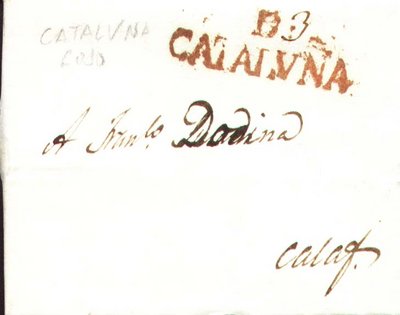 CATALVNA
ROJO
B 3
CATALVÑA
A Franco. Dodina
Calaf.